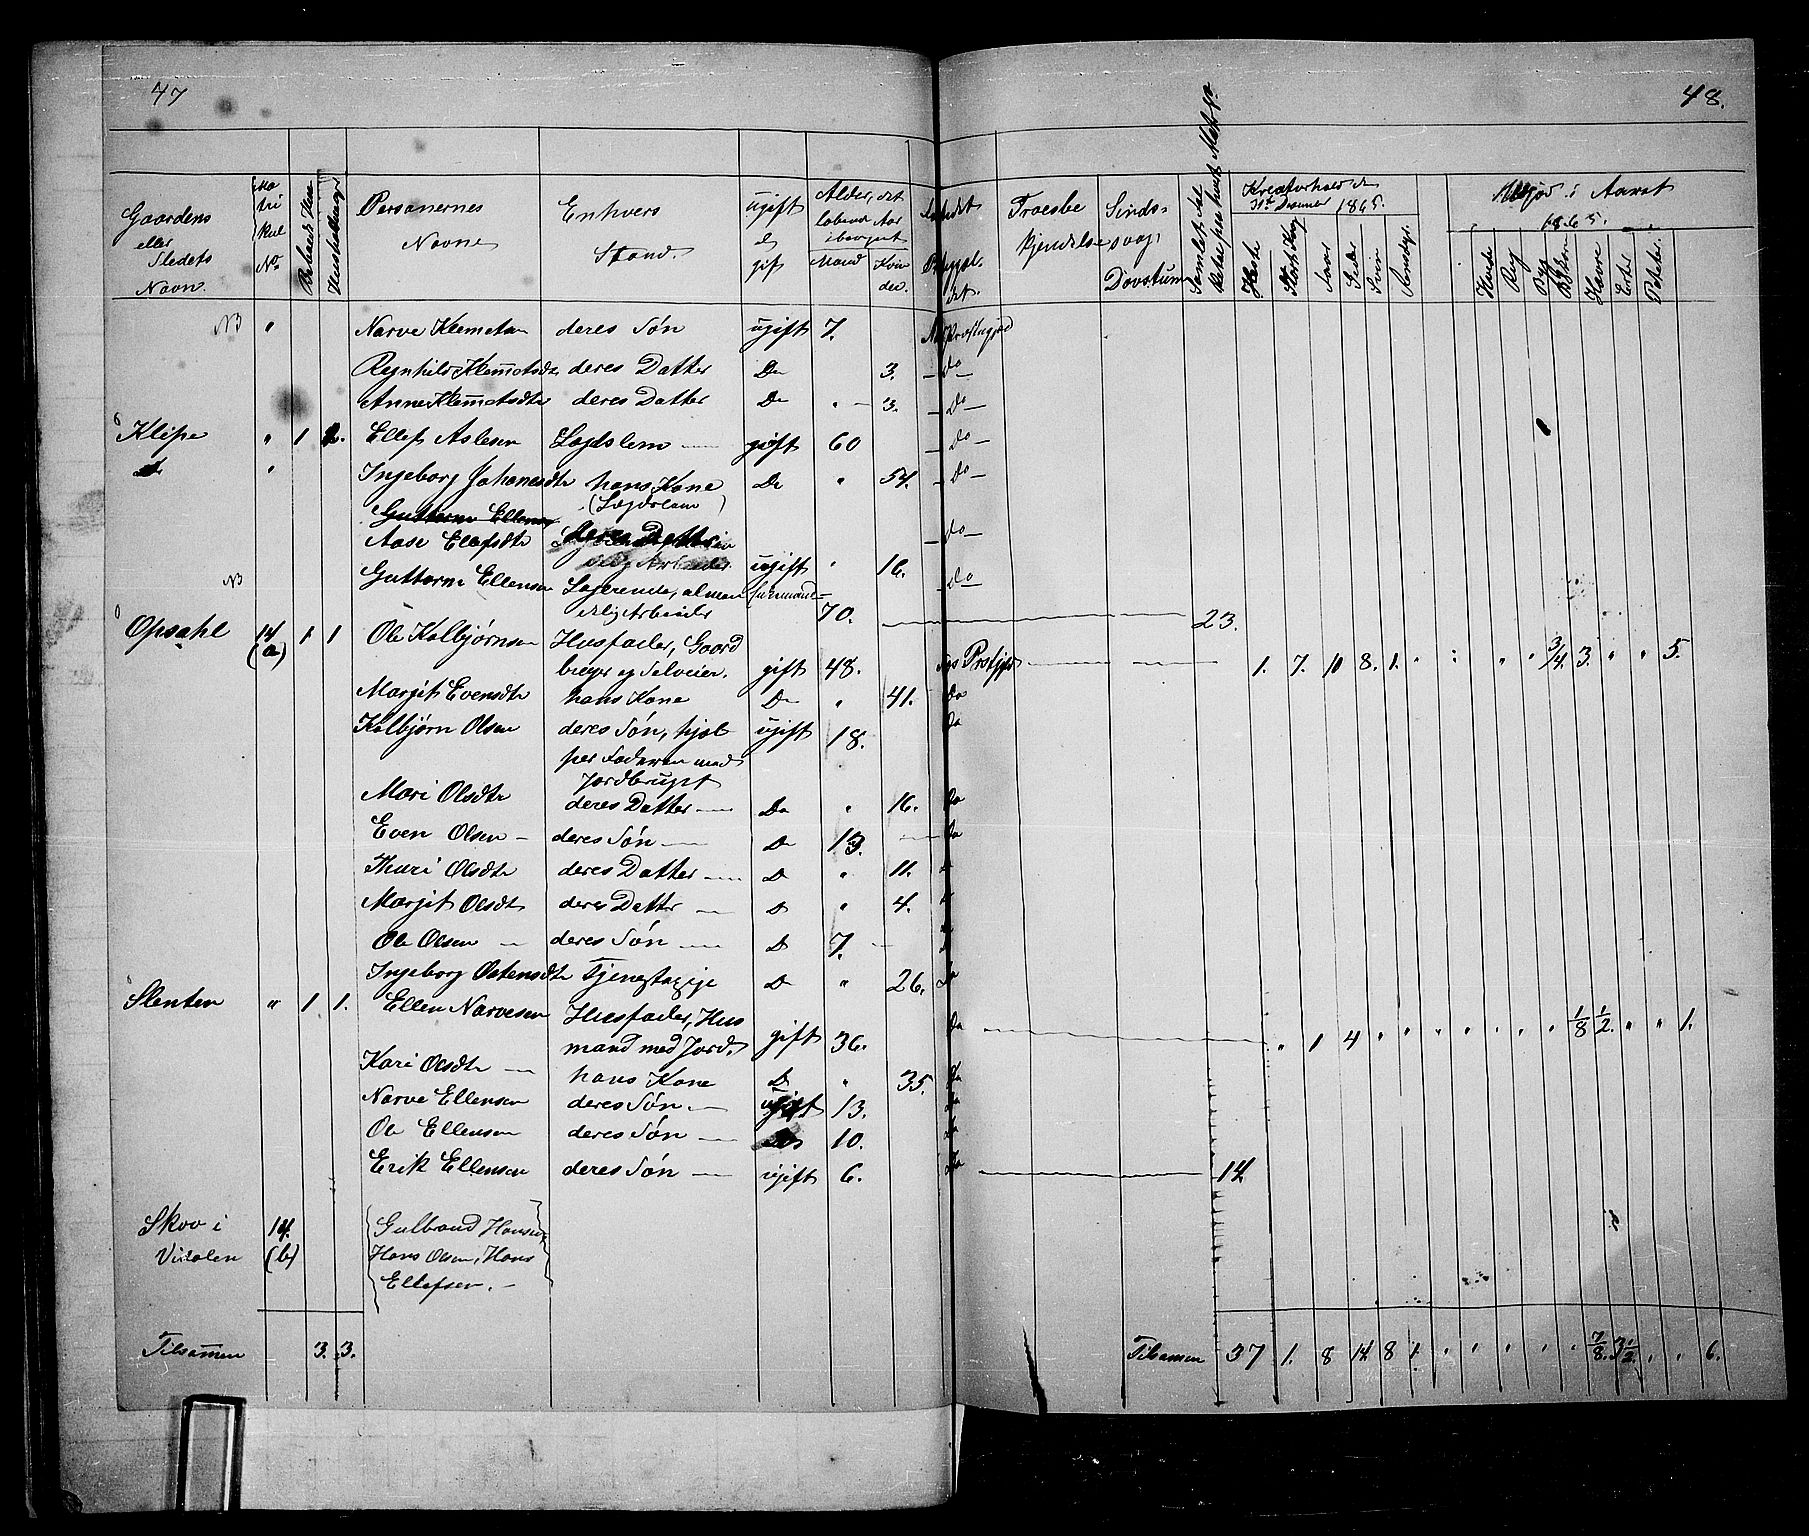 47
48.
Gaardens eller Stedets Navn.
Matrikul No
Personernes Navne
Enhvers Stand.
ugift el gift
Alder, det løbende Aar iberegnet
Mand
Kvinder.
Troesbekjendelse
Sindssvag.
Døvstum
Kreaturhold den 31te Desember 1865.
Heste
Stort Kvæg
Faar
Svin
Udsæd i Aaret 1865.
Hvede
Rug
Byg
Havre
Erter
Poteter
NB " Narve Klemetsen deres Søn ugift 7.
Ragnhild Klemetsdtr deres Datter Do 3. – Do –
Anne Klemetsdtr deres Datter Do " – 3. – Do –
Klipe " 1 2. Ellef Aslesen Lægdslem gift 60 – Do –
" Ingeborg Johanesdtr hans Kone Do " 54. – Do –
(Lægdslem)
Guttorm Ellensen
Aase Elefsdtr deres Datter ugift " 16. – Do –
NB Guttorm Ellensen Logerende, almindelig Arbeider 70. Do 23.
Opsahl 14 (a) 1 1 Ole Kolbjørnsen Husfader, Gaard
bruger og Selveier. gift 48. 1. 7. 10 8. 1. " " " " 3/4 3. " " 5.
Margit Evensdtr hans Kone Do " 41. Do
Kolbjørn Olsen deres Søn, hjel- ugift 18. Do
per Faderen med
Jordbruget
Mari Olsdtr deres Datter Do " 16. Do
Even Olsen – deres Søn Do 13. Do
Thuri Olsdtr deres Datter D " 11.
Margit Olsdtr deres Datter D " 4.
Ole Olsen – deres Søn D 7.
Ingeborg Ostensdtr Tjenestepige D " 26. Do
Slenten " 1 1. Ellen Narvesen Husfader, Hus
mand med Jord. gift 36. Do " 1 4 " " " " " " 1/8 1/2. " " 1.
Kari Olsdtr hans Kone D " 35. Do
Narve Ellensen deres Søn ugift 13.
Ole Ellensen deres Søn Do 10.
Erik Ellensen deres Søn ugift 6. 14
Skov i Vidalen 14. (b) Gulbrand Hansen,
Hans Olsen, Hans
Ellefsen. –
Tilsammen 3. 3. Tilsamen 37 1. 8 14 8 1. " " " " " 7/8. 3 1/2. " " 6.